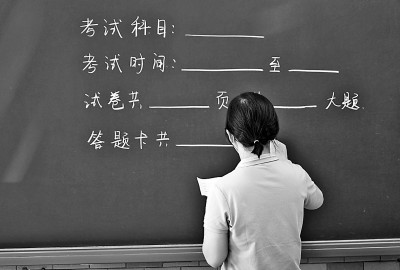 考试科目：______
考试时间：______至____
试卷共____页____大题
答题卡共____